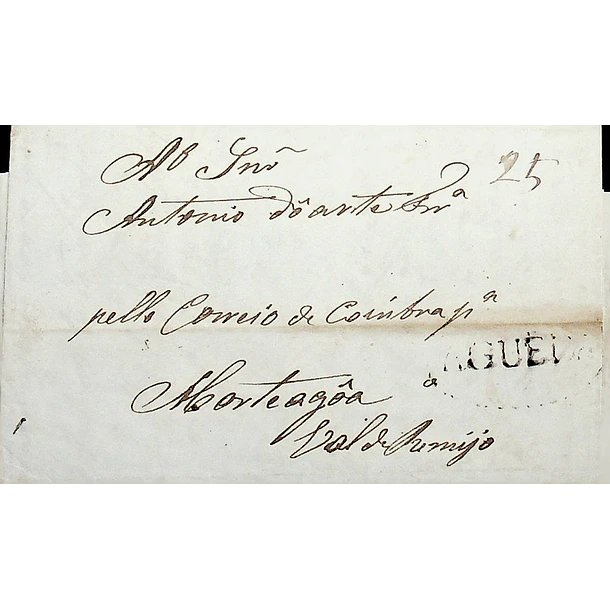 Ao Snr̃
25
Antonio dôarte Frª
pello Correio de Coimbra pª
AGUEDA
Morteagôa a
Val de Remijo